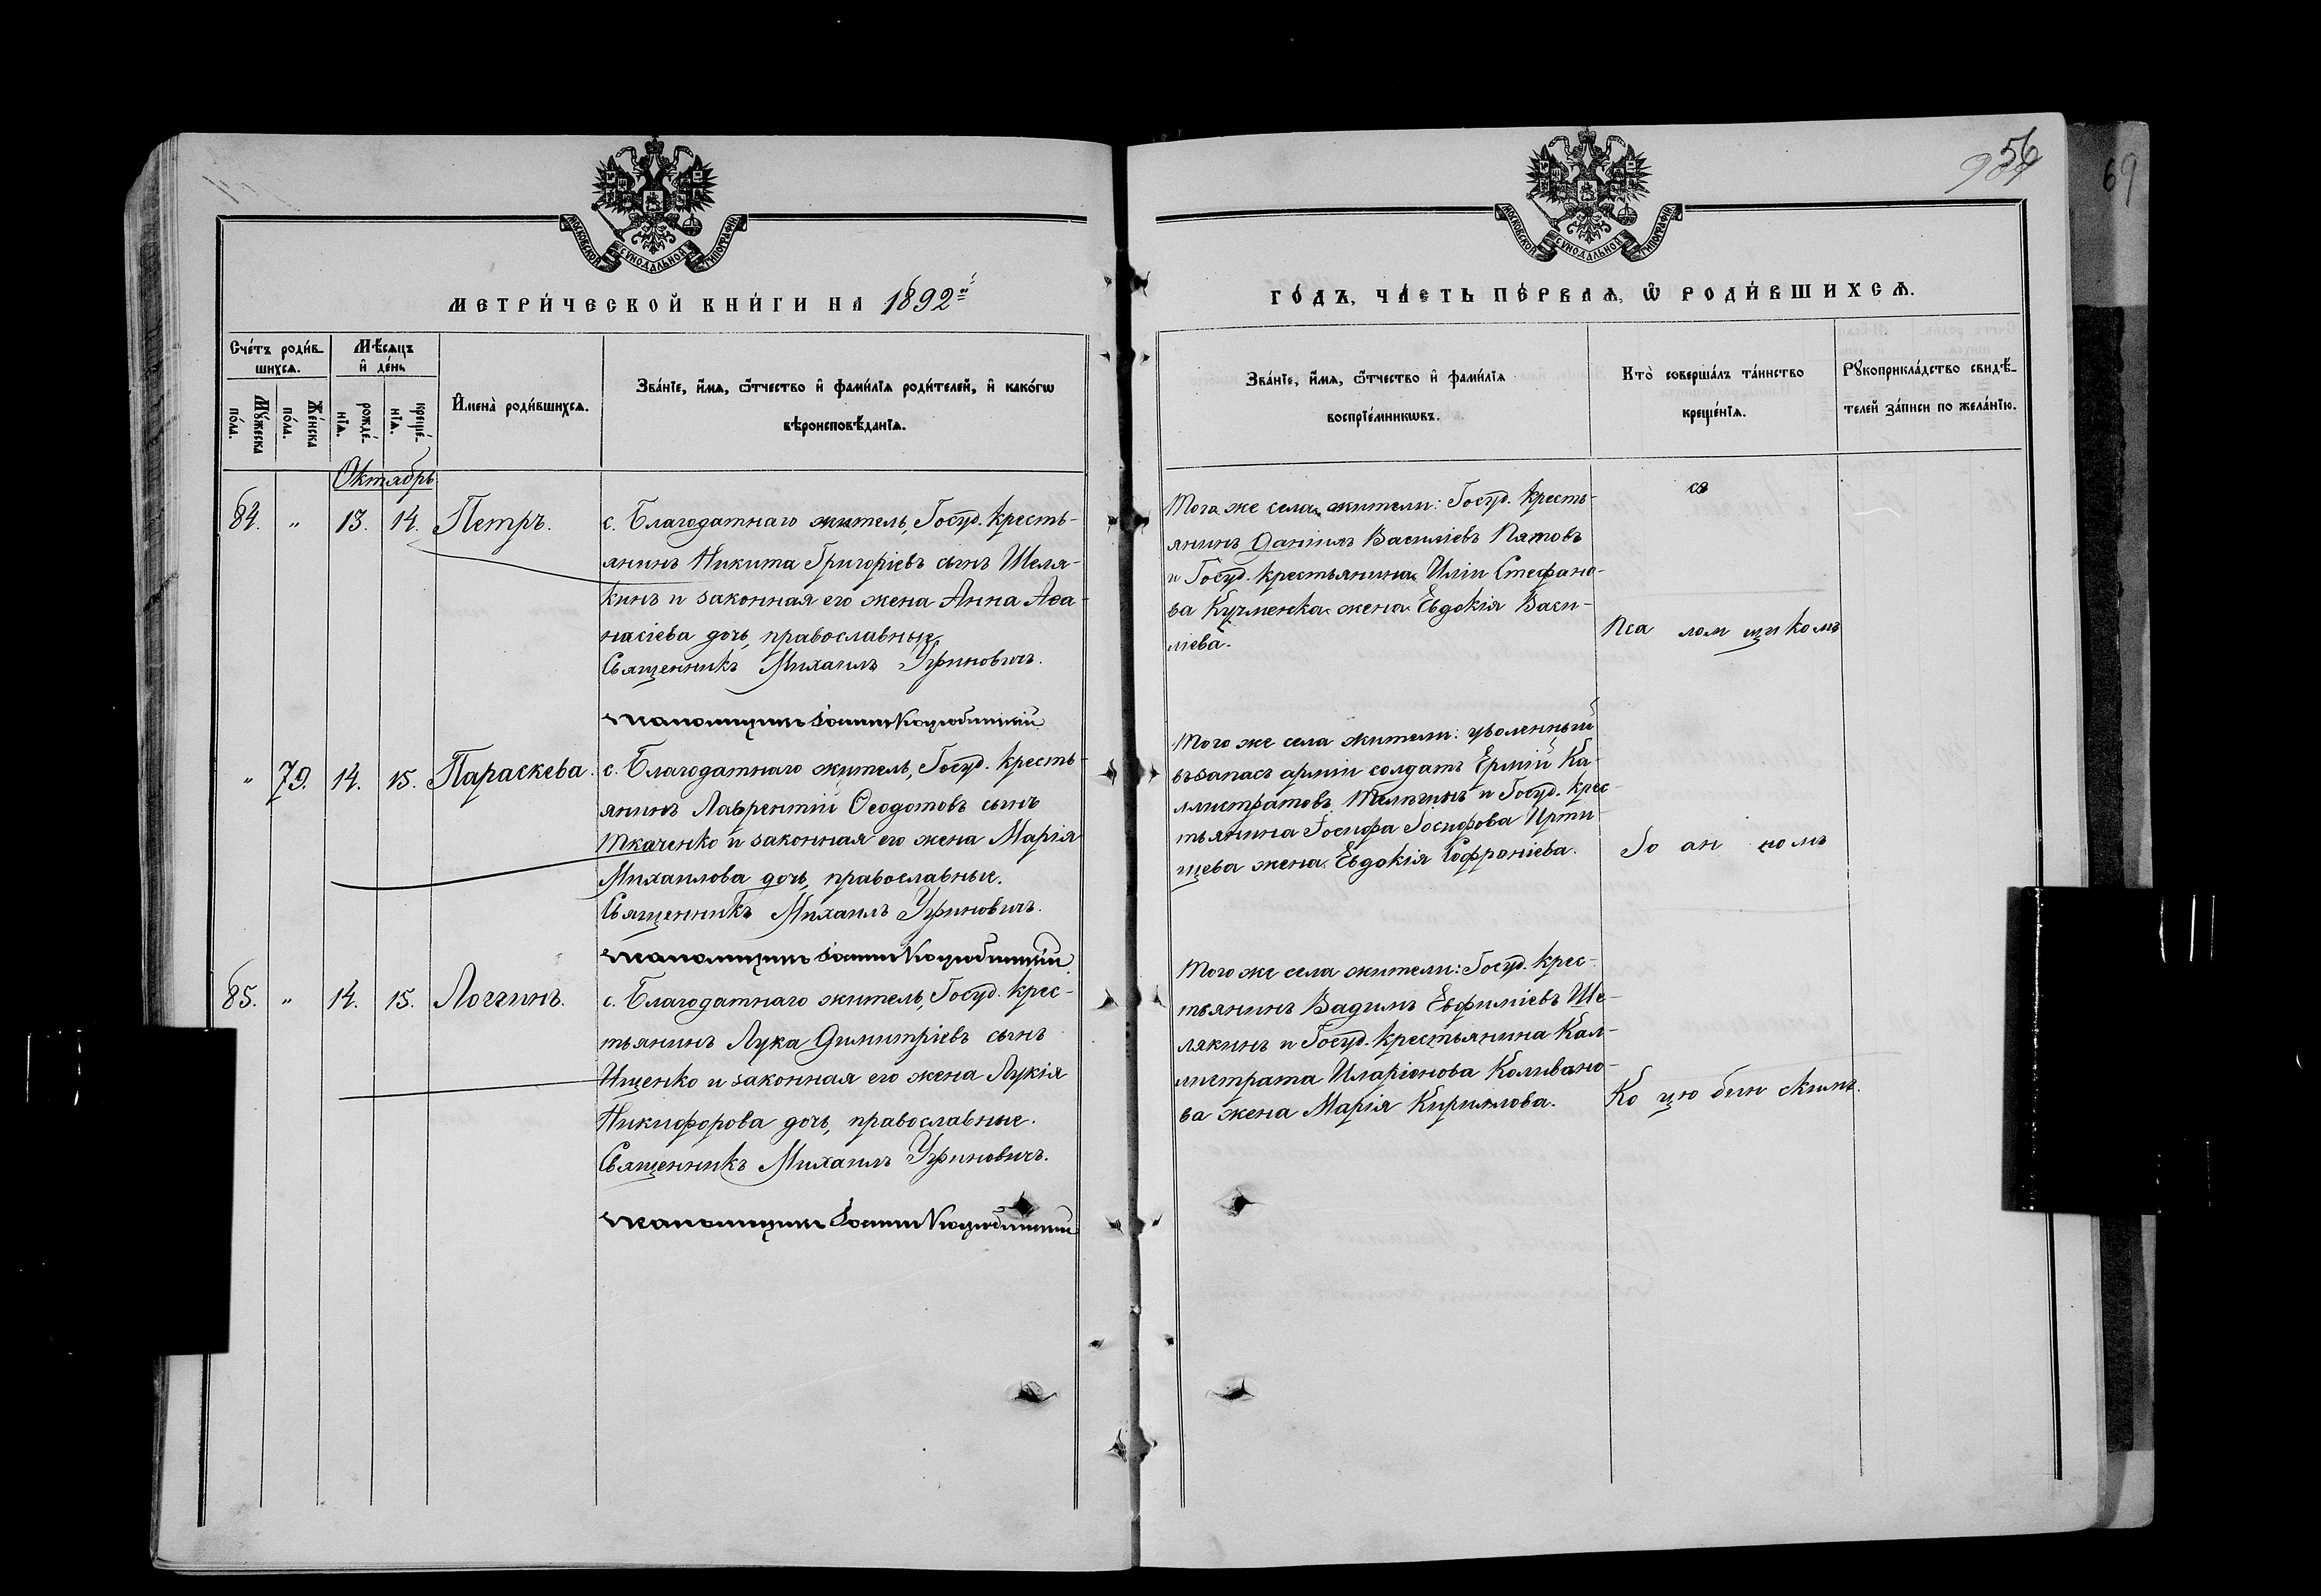 56
69
МОСКОВСКОЙ СѴНОДАЛЬНОЙ ТИПОГРАФІИ
МЕТРИ́ЧЕСКОЙ КНИ́ГИ НА 1892й
Сче́тъ роди́в-
шихсѧ.
Мѣ́сѧцъ
и҆ де́нь
Мꙋ́жеска
по́ла.
Же́нска
по́ла.
рожде́-
нїѧ.
креще́-
нїѧ.
И҆мена̀ роди́вшихсѧ.
Зва́нїе, и҆́мѧ, ѻ҆́тчество и҆ фами́лїѧ роди́телей, и҆ како́гѡ
вѣроисповѣ́данїѧ.
Октябрь
84. " 13. 14. Петръ.
с. Благодатнаго житель, Госуд. кресть-
янинъ Никита Григоріевъ сынъ Шеля-
кинъ и законная его жена Анна Аѳа-
насіева дочь, православные.
Священникъ Михаилъ Угриновичъ.
Псаломщикъ Іоаннъ Коцюбинскій
" 79. 14. 15. Параскева.
с. Благодатнаго житель, Госуд. кресть-
янинъ Лаврентій Ѳеодотовъ сынъ
Ткаченко и законная его жена Марія
Михаилова дочь, православные.
Священникъ Михаилъ Угриновичъ.
Псаломщикъ Іоаннъ Коцюбинскій
85. " 14. 15. Логгинъ.
с. Благодатнаго житель, Госуд. крес-
тьянинъ Лука Димитріевъ сынъ
Ищенко и законная его жена Лукія
Никифорова дочь, православные.
Священникъ Михаилъ Угриновичъ.
Псаломщикъ Іоаннъ Коцюбинскій
МОСКОВСКОЙ СѴНОДАЛЬНОЙ ТИПОГРАФІИ
ГО́ДЪ, ЧА́СТЬ ПЕ́РВАѦ, Ѡ҆ РОДИ́ВШИХСѦ.
Зва́нїе, и҆́мѧ, ѻ҆́тчество и҆ фами́лїѧ
воспрїе́мникѡвъ.
Кто̀ соверша́лъ та́инство
креще́нїѧ.
Рꙋкоприкла́дство свидѣ́-
телей за́писи по жела́нїю.
Того же села жители: Госуд. кресть-
янинъ Даніилъ Василіевъ Пятовъ
и Госуд. крестьянина Иліи Стефано-
ва Кузменка жена Евдокія Васи-
ліева.
съ
Пса лом щикомъ
Того же села жители: уволенный
въ запасъ арміи солдатъ Ермій Ка-
ллистратовъ Тельгинъ и Госуд. крес-
тьянина Іосифа Іосифова Ирти-
щева жена Евдокія Софроніева.
Іо ан номъ
Того же села жители: Госуд. крес-
тьянинъ Вадимъ Евфиміевъ Ше-
лякинъ и Госуд. крестьянина Кал-
листрата Иларіонова Коливано-
ва жена Марія Кириллова.
Ко цю бин скимъ.